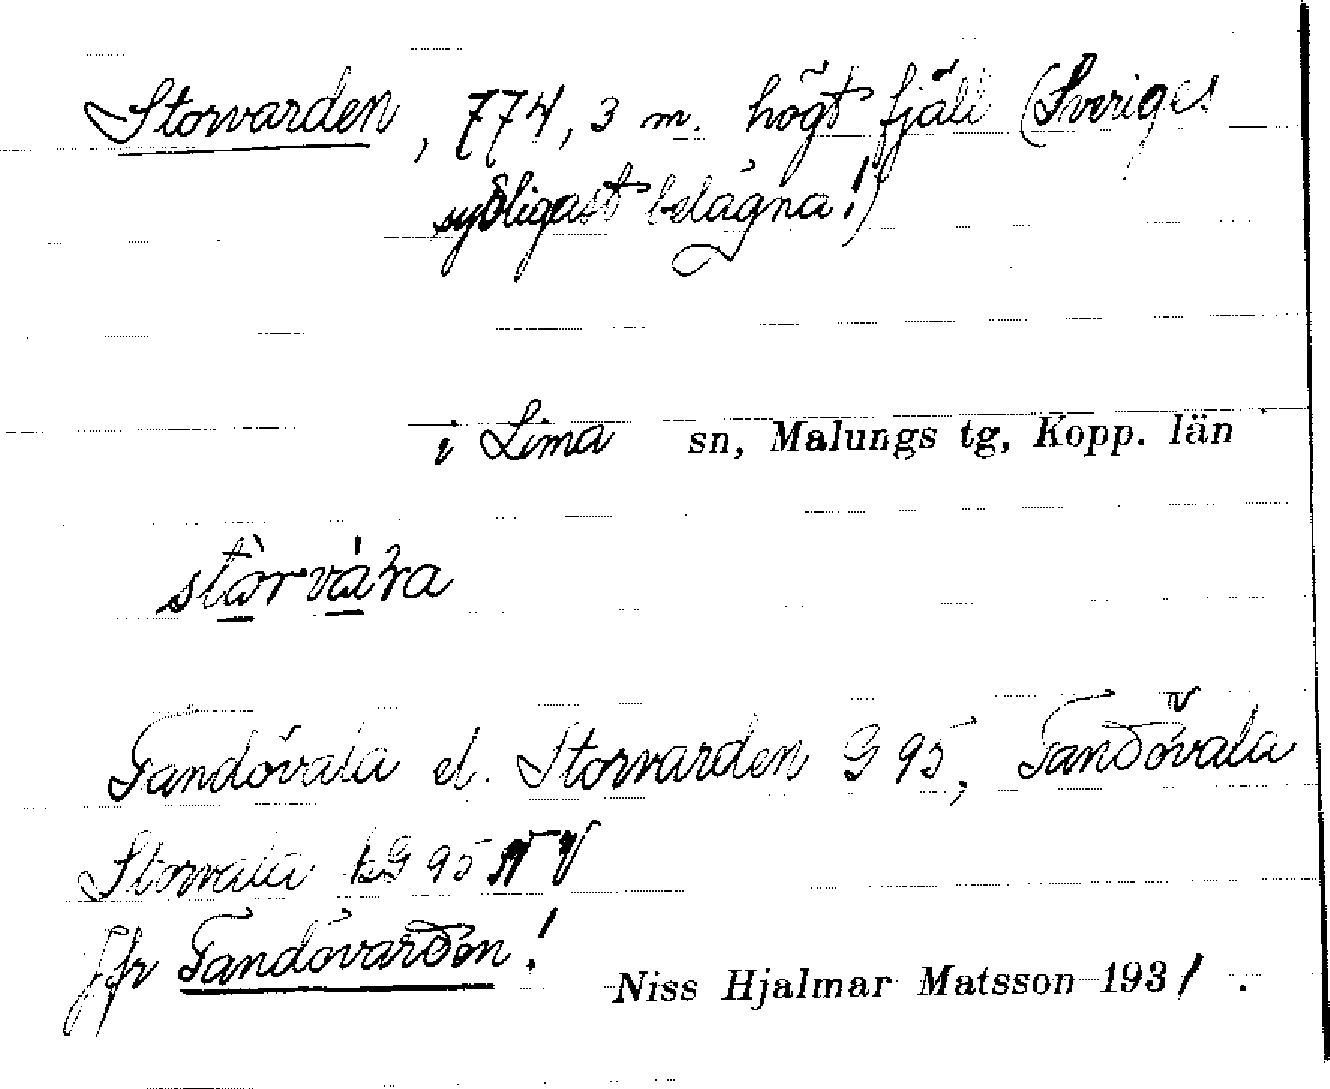 Storvarden, 774,3 m. högt fjäll (Sveriges
sydligast belägna!)
i Lima sn, Malungs tg, Kopp. län
Tandövala el. Storvarden G 95, Tandövala
Storvala G 95
Jfr Tandövarden!
Niss Hjalmar Matsson 1931.